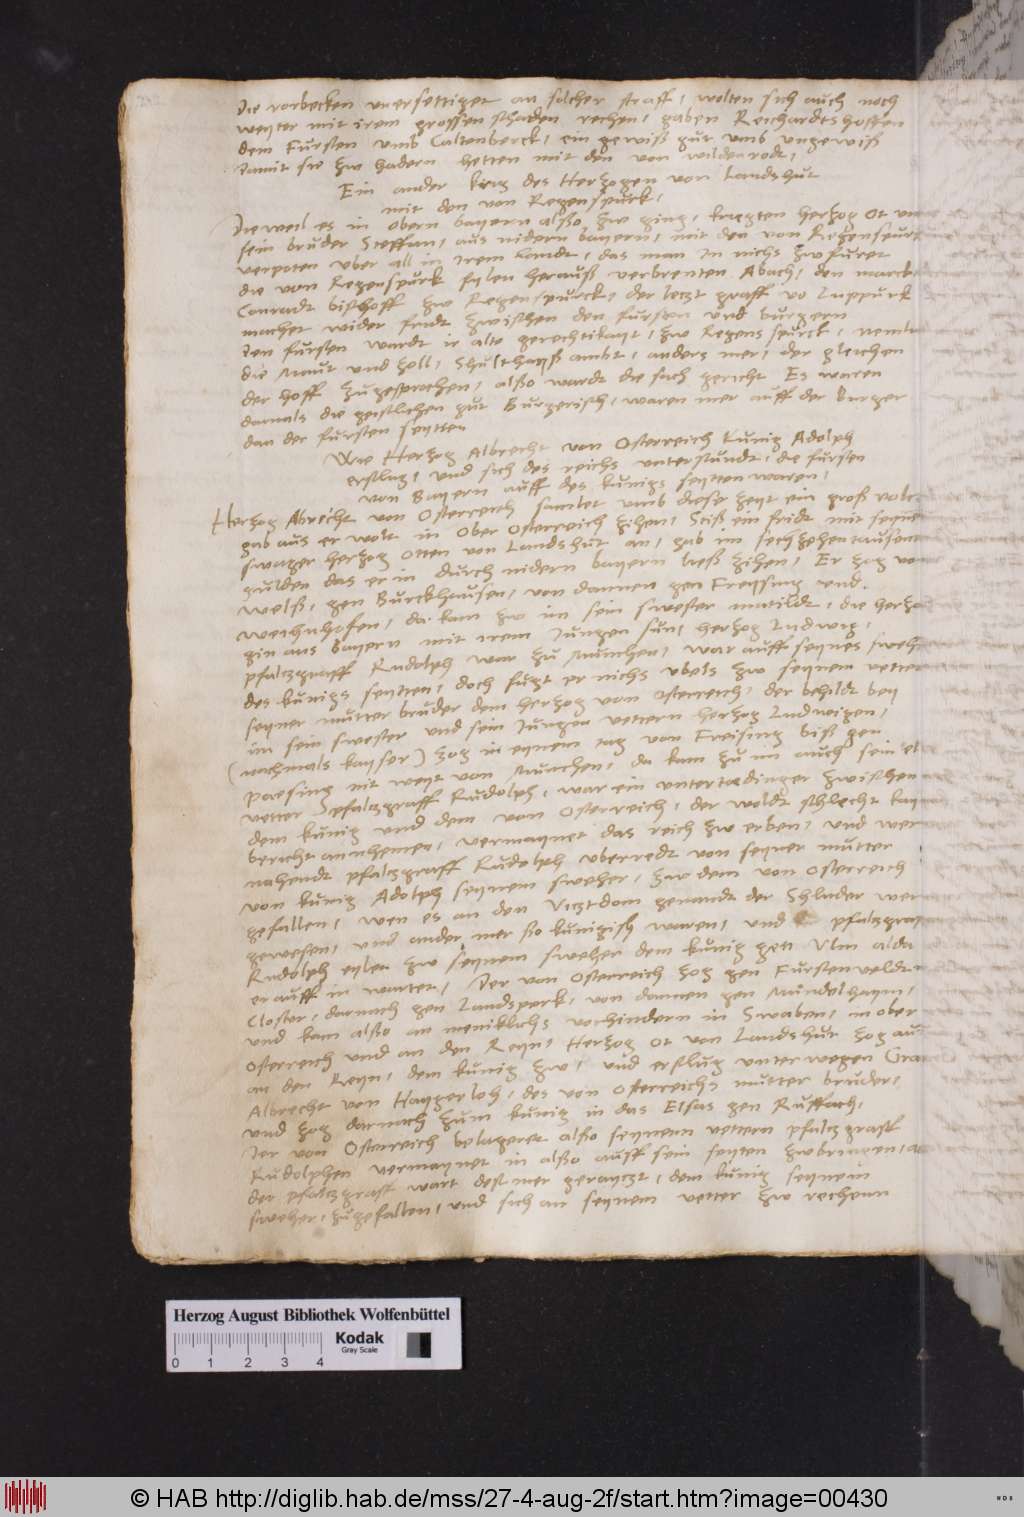 Die rorbecken unersettiget an solcher straff, wolten sich auch noch
weyter mit irem grossen schaden rechen, gaben Reichardtshoffen
dem Fursten umb Caltenberck, ein gewiß gut umb ungewiß
damit sie zw hadern hetten mit den von wildenrodt,
Ein ander krig des Herzogen von Landshut
mit den von Regenspurk,
Die weil es in obern bayern alßo zw ging, krigten herzog Ot
sein bruder Steffan, aus nidern bayern, mit den von Regenspurk
verpoten uber all in Irem Landt, das man In nichs zwfuret
die von Regenspurk fylen herauß verbrenten Abach, den marck
Conradt bischoff zw Regenspurck, der letzt graff vo Luppurk
machet wider fridt zwischen den fursten und burgern
den fursten wardt ir alte gerechtikayt, zw Regenspurck,
die Maut und zoll, Shulthayß ambt, anders mer, der gleichen
der hoff zugesprochen, alßo wardt die sach gericht Es waren
damals die geistlichen gut Burgerisch, waren mer auff der Burger
dan der fursten seytten
Wie Herzog Albrecht von Osterreich Kunig Adolph
erslug, und sich des reichs unterstundt, die fursten
von Bayern auff des kunigs seytten waren,
Herzog Abrecht von Osterreich samlet umb diese zeyt ein groß volck
gab aus er wolt in Ober Osterreich zihen, Stiß ein fridt mit seynem
swager herzog Otten von Landshut an, gab im sechzehentausent
gulden das er in durch nidern bayern ließ zihen, Er zog von
Welß, gen Burckhausen, von dannen gen Freysing und
weihnhofen, da kam zw im sein swester matildt, die herzo
gin aus Bayern mit irem Jungen sun, herzog Ludwig,
pfaltzgraff Rudolph war zu Munchen, war auff seynes swehers
des kunigs seytten, doch fugt er nichs ubels zw seynem vetter
seyner mutter bruder dem herzog von Osterreich, der behildt bey
im sein swester und sein Jungen vettern herzog Ludwigen,
(nachmals kayser) zog in eynem tag von Freising biß gen
Paesing nit weyt von Munchen, da kam zu im auch sein
vetter pfaltzgraff Rudolph, war ein untertaedinger zwischen
dem kunig und dem von Osterreich, der woldt schlecht kayn
bericht annhemen, vermaynet das reich zw erben, und wer
nahendt pfaltzgraff Rudolph uberredt von seyner mutter
von kunig Adolph seynem sweher, zw dem von Osterreich
gefallen, wen es an den Vitztdom genandt der Shluder wer
gewesen, und ander mer ßo kunigish waren, und pfaltzgraff
Rudolph eylet zw seynem sweher dem kunig gen Ulm alda
er auff in wartet, Der von Osterreich zog gen Furstenveldt
Closter, darnach gen Landsperk, von dannen gen Mundelhaym,
und kam alßo an meniklichs verhindern in Swaben, in ober
Osterreich und an den Reyn, Herzog Ot von Landshut zog auch
an den Reyn, dem kunig zw, und erslug unterwegen Graff
Albrecht von Haygerloh, des von Osterreichs mutter bruder,
und zog darnach zum kunig in das Elsas gen Ruffach,
Der von Osterreich belageret alßo seynenn vettern pfaltzgraff
Rudolphen vermaynet in alßo auff sein seyten zwbringen,
der pfaltzgraff wart dest mer gerayczt, dem kunig seynem
sweher, zugefallen, und sich an seynem vetter zw rechenn
Herzog August Bibliothek Wolfenbüttel
Kodak
Gray Scale
0 1 2 3 4
© HAB http://diglib.hab.de/mss/27-4-aug-2f/start.htm?image=00430